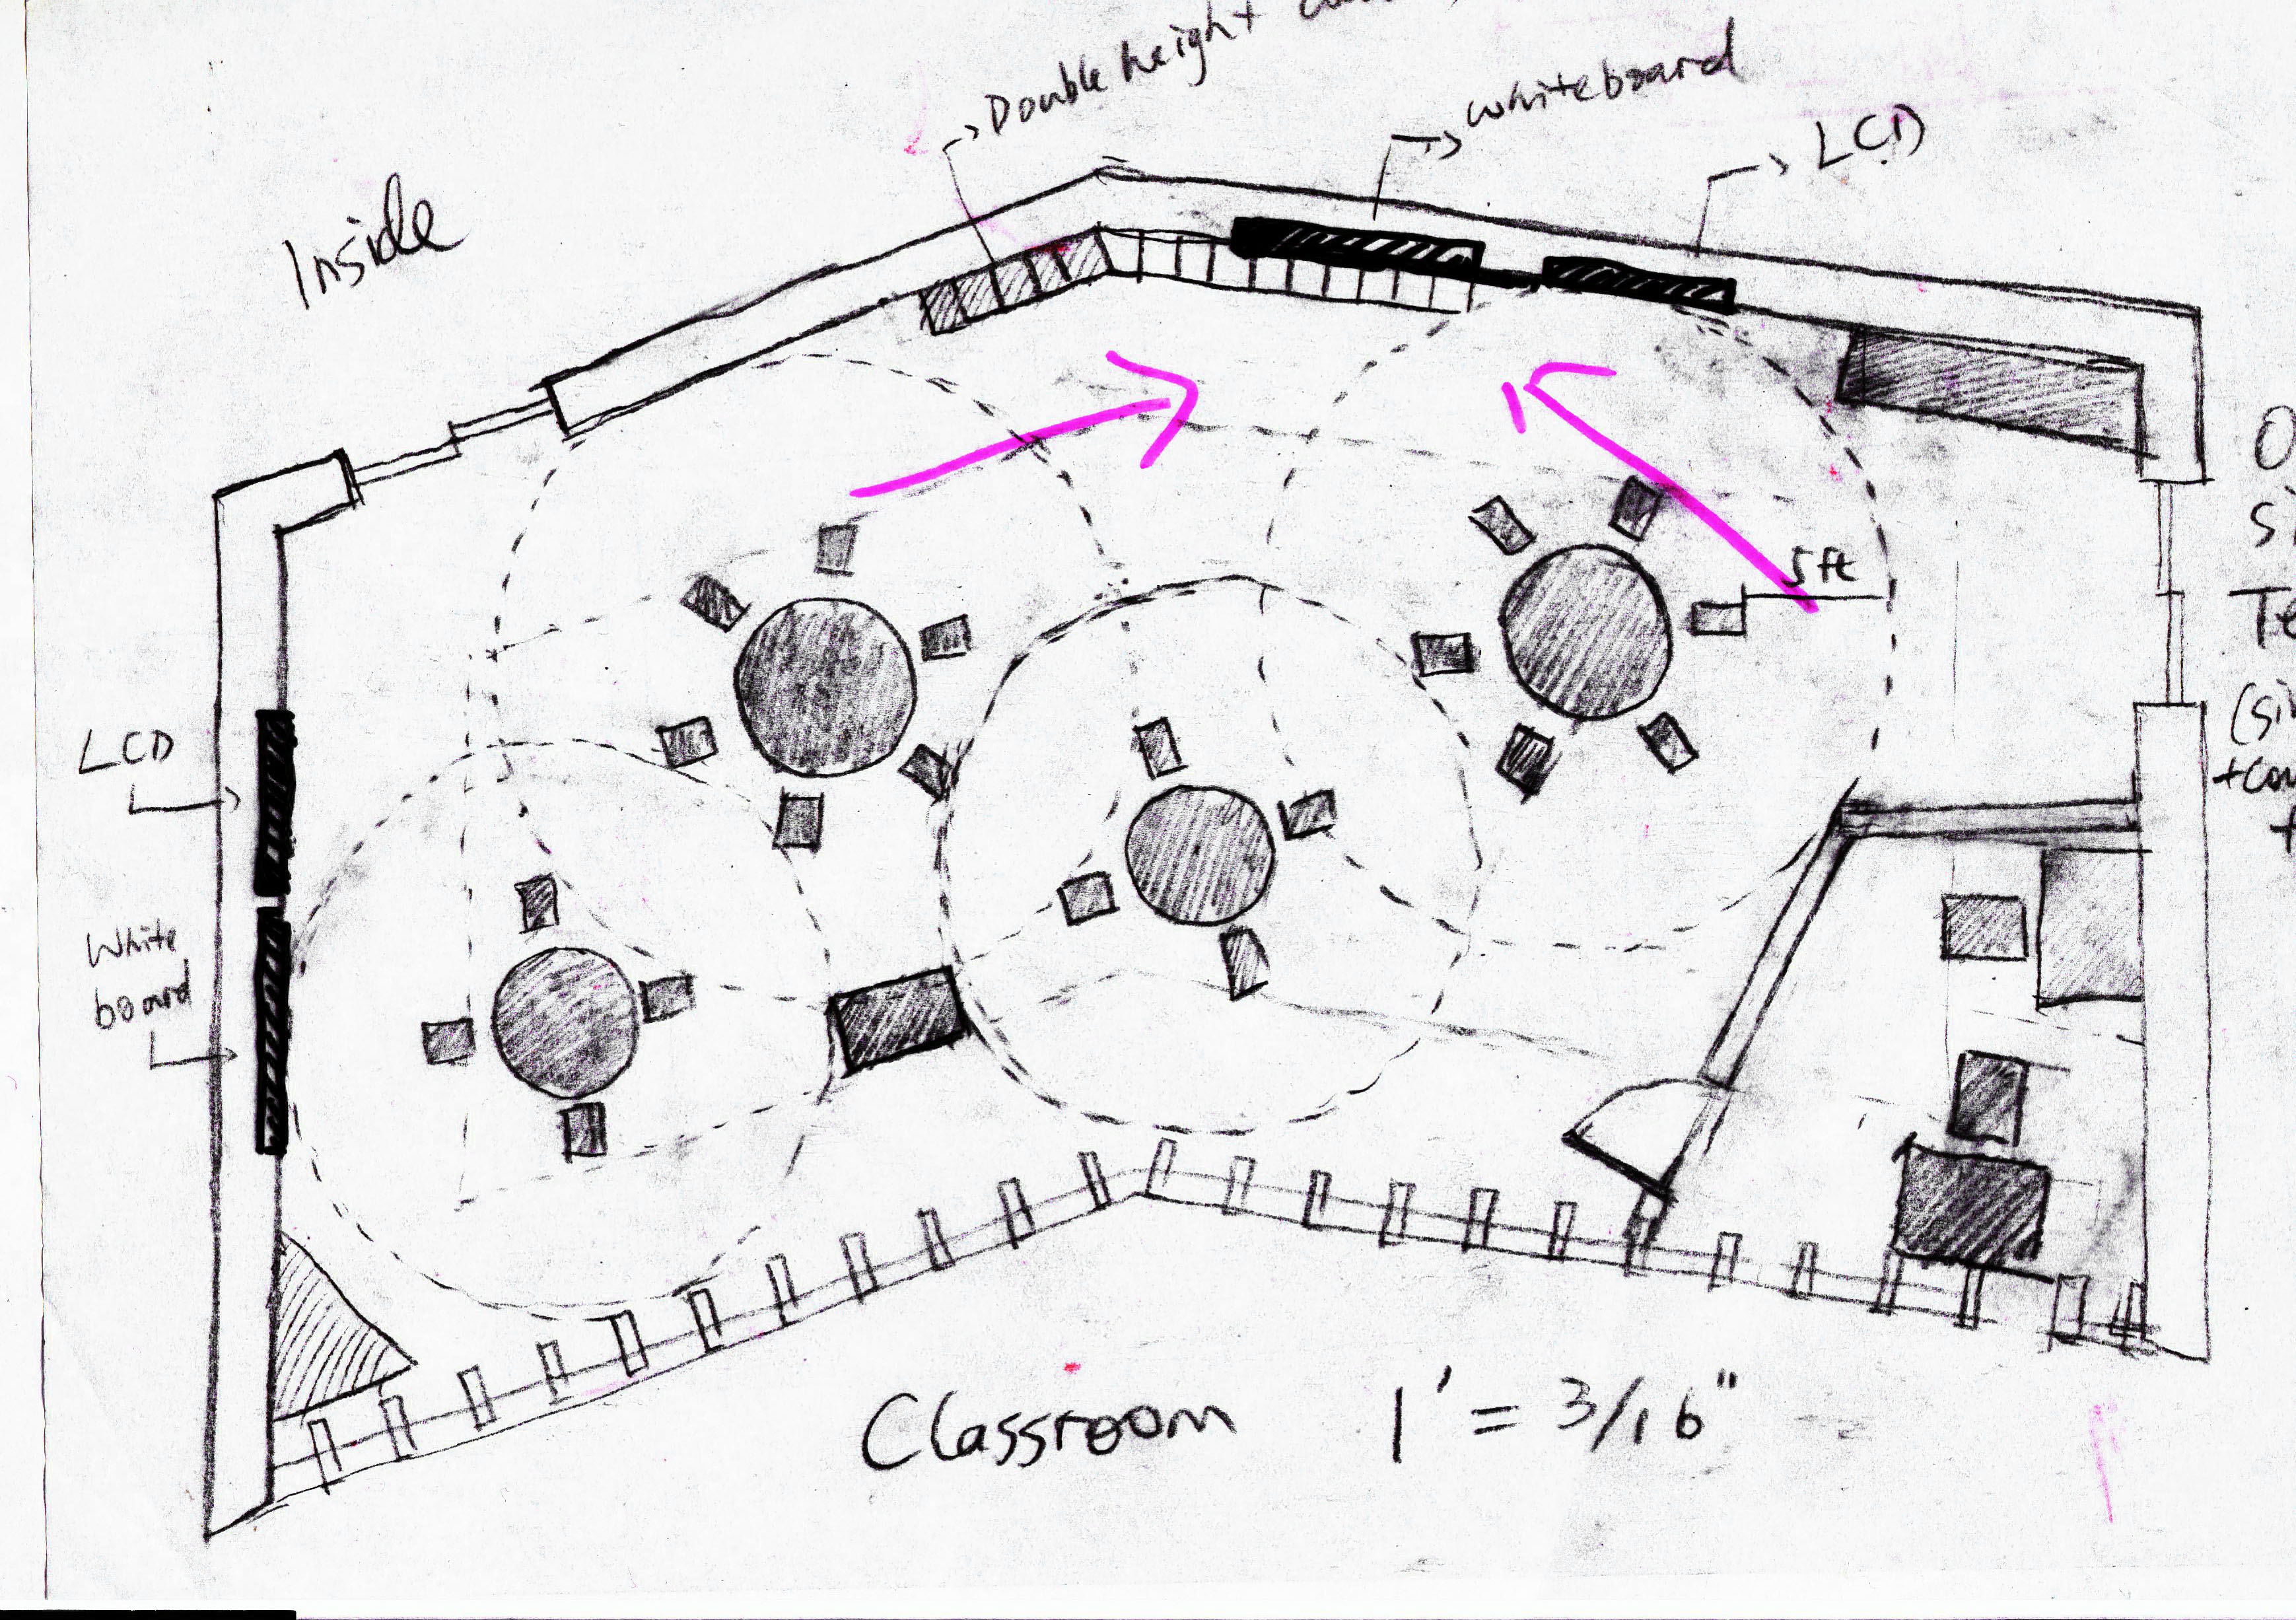 Double height
whiteboard
LCD
Inside
5 ft
LCD
White
board
Classroom 1' = 3/16"